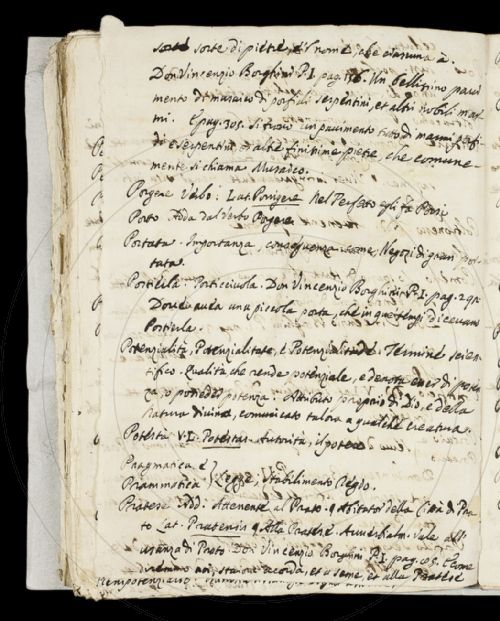 sorte di pietre, e'l nome, che ciascuna à.
Don Vincenzio Borghini P. I. pag. 156. Un bellissimo pavi
mento di musaico di porfidi serpentini, et altri nobili mar-
mi. E pag. 305. si trovò un pavimento tutto di marmi porfi-
di e serpentini e altre finissime pietre, che comune-
mente si chiama Musaico.
Porgere Verbo: Lat. Porrigere nel Perfetto egli fa Porsi
Porto Add. dal Verbo Porgere
Portata. Importanza, conseguenza come, Negozi di gran por-
tata.
Porticila. Porticciuola. Don Vincenzio Borghini P. I. pag. 291.
Dove aveva una piccola porta, che in quei tempi dicevano
Porticila.
Potenzialità, Potenzialitate, e Potenzialitade. Termine scien-
tifico. Qualità che rende potenziale, e denota poten-
za, o potenza: Attributo proprio di Dio, e della
natura divina, comunicato talora a qualche creatura.
Potestà V. L. Potestas. Autorità, il potere
Pragmatica e
Prammatica Legge, stabilimento Regio.
Pratese Add: Attenente al Prato. abitator della Città di Pra-
to Lat. Pratensis Alla Pratese Avverbialm. vale all'
usanza di Prato. Don Vincenzio Borghini P. I. pag. 05. E come
diremmo noi, staiora a corda, et a seme, et alla Pratese